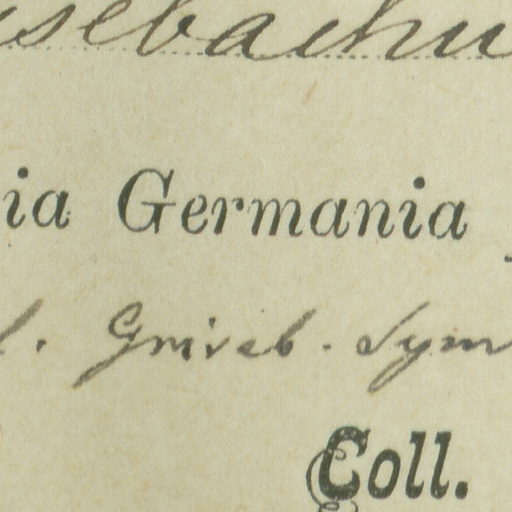 isebachu
ia Germania
l. Griseb. Sym
Coll.